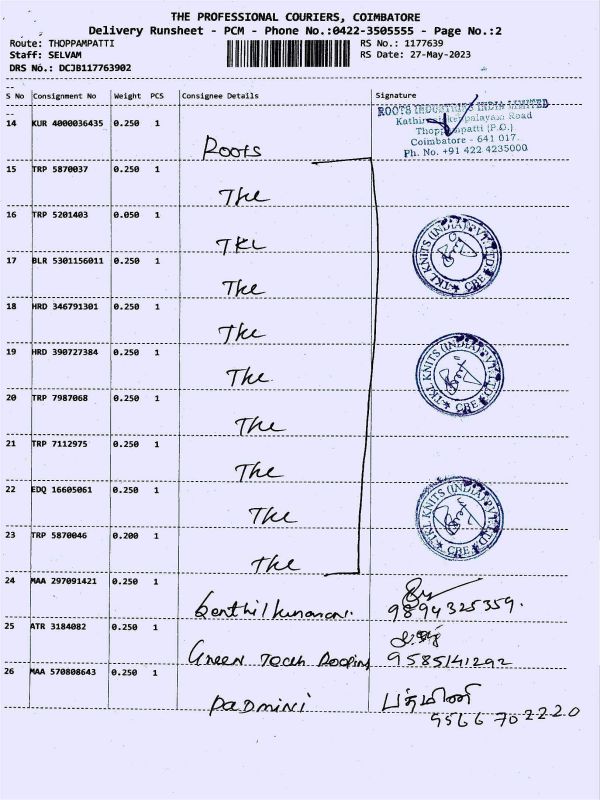 THE PROFESSIONAL COURIERS, COIMBATORE
Delivery Runsheet - PCM - Phone No.:0422-3505555 - Page No.:2
Route: THOPPAMPATTI
Staff: SELVAM
DRS No.: DCJB117763902
RS No.: 1177639
RS Date: 27-May-2023
S No Consignment No Weight PCS Consignee Details Signature
14 KUR 4000036435 0.250 1
Roots
ROOTS INDUSTRIES INDIA LIMITED
Palayam Road
(P.O.)
Coimbatore - 641 017.
Ph. No. +91 422 4235000
15 TRP 5870037 0.250 1
TKL
16 TRP 5201403 0.050 1
TKL
17 BLR 5301156011 0.250 1
TKL
TKL KNITS (INDIA) PVT. LTD
CBE
18 HRD 346791301 0.250 1
TKL
19 HRD 390727384 0.250 1
TKL
TKL KNITS (INDIA) PVT. LTD
CBE
20 TRP 7987068 0.250 1
TKL
21 TRP 7112975 0.250 1
TKL
22 EDQ 16605061 0.250 1
TKL
TKL KNITS (INDIA) PVT. LTD
CBE
23 TRP 5870046 0.200 1
TKL
24 MAA 297091421 0.250 1
Senthilkumaran.
9894325359.
25 ATR 3184082 0.250 1
Green Tech Roofing 9585141292
26 MAA 570808643 0.250 1
Padmini பத்மினி
9566702220